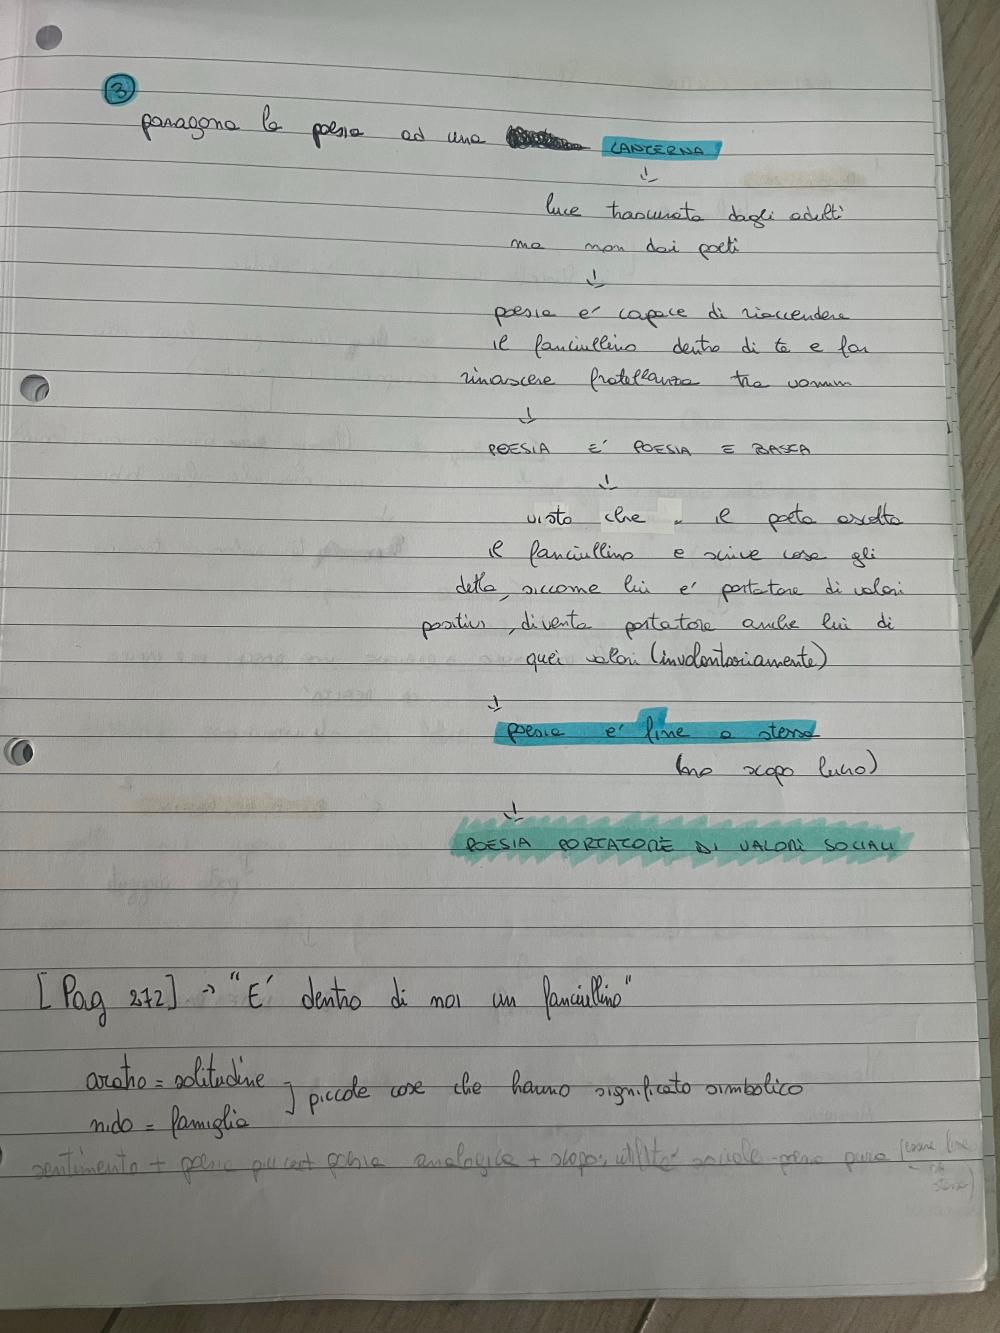 3
paragona la poesia ad una LANTERNA
↓
luce trascurata dagli adulti
ma non dai poeti
↓
poesia e' capace di riaccendere
il fanciullino dentro di te e far
rinascere fratellanza tra uomini
↓
POESIA E' POESIA E BASTA
↓
visto che il poeta ascolta
il fanciullino e scrive cose gli
detta, siccome lui e' portatore di valori
positivi, diventa portatore anche lui di
quei valori (involontariamente)
↓
poesia e' fine a stessa
(no scopo lucro)
↓
POESIA PORTATORE DI VALORI SOCIALI
[Pag 272] → "E' dentro di noi un fanciullino"
aratro = solitudine
nido = famiglia ] piccole cose che hanno significato simbolico
sentimento + poesia analogica + scopo, utilità sociale - poesia pura